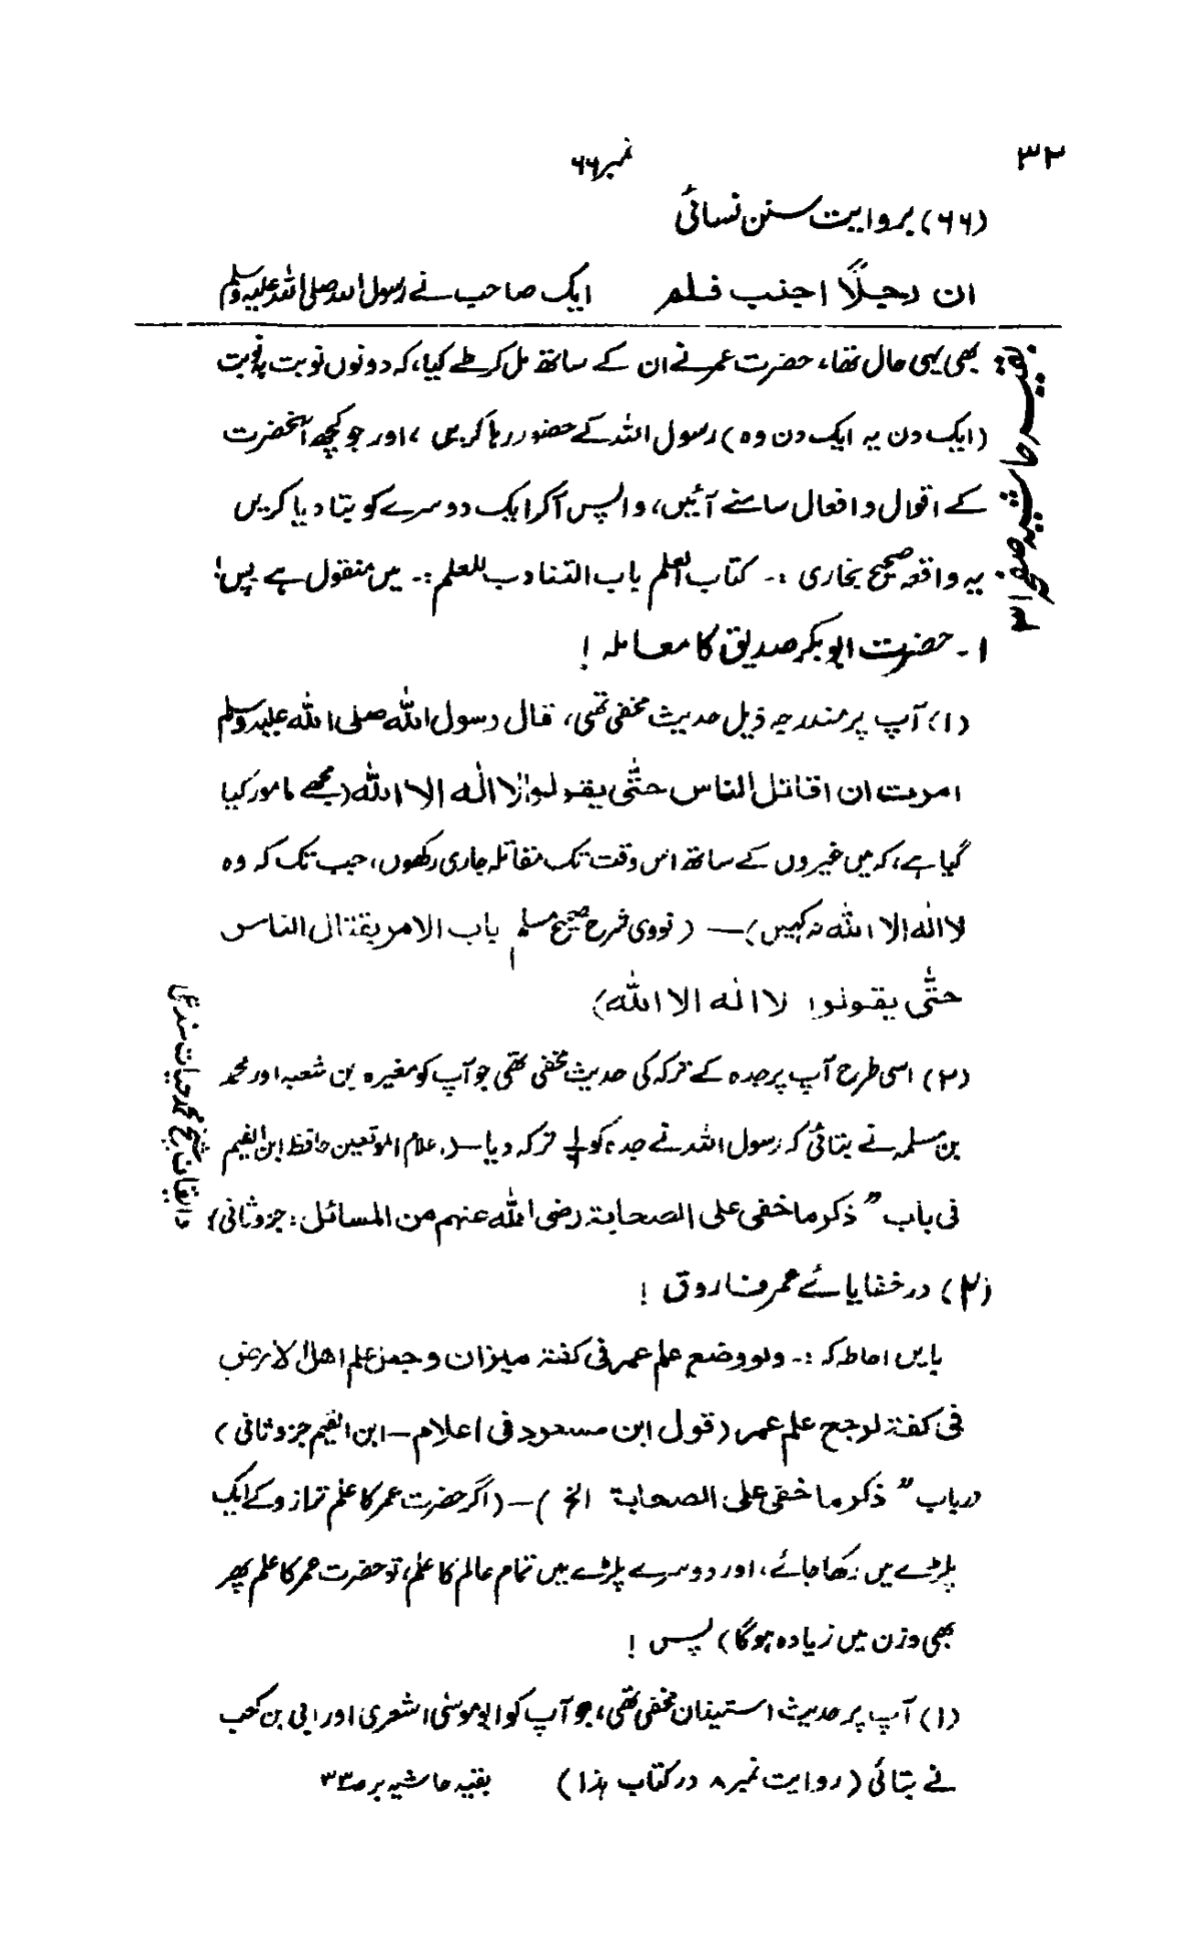 ۳۲
نمبر ۶۶
(۶۶) بروایت سنن نسائی
ان رجلاً اجنب فلم ایک صاحب نے رسول اللہ صلی اللہ علیہ وسلم
بقیہ حاشیہ صفحہ ۳۱
بھی یہی حال تھا، حضرت عمر نے ان کے ساتھ مل کر طے کیا، کہ دونوں نوبت بہ نوبت
(ایک دن یہ ایک دن وہ) رسول اللہ کے حضور رہا کریں، اور جو کچھ آنحضرت
کے اقوال و افعال سامنے آئیں، واپس آکر ایک دوسرے کو بتا دیا کریں
یہ واقعہ صحیح بخاری :۔ کتاب العلم باب التناوب للعلم :۔ میں منقول ہے پس!
۱۔ حضرت ابوبکر صدیق کا معاملہ !
(۱) آپ پر مندرجہ ذیل حدیث مخفی تھی، قال رسول اللہ صلی اللہ علیہ وسلم
امرت ان اقاتل الناس حتّٰی یقولوا لا الٰہ الا اللہ (مجھے مامور کیا
گیا ہے، کہ میں غیروں کے ساتھ اس وقت تک مقاتلہ جاری رکھوں، جب تک کہ وہ
لا الٰہ الا اللہ نہ کہیں) — (نووی شرح صحیح مسلم باب الامر بقتال الناس
حتّٰی یقولوا لا الٰہ الا اللہ)
(۲) اسی طرح آپ پر جدہ کے ترکہ کی حدیث مخفی تھی جو آپ کو مغیرہ بن شعبہ اور محمد
بن مسلمہ نے بتائی کہ رسول اللہ نے جدہ کو ⅙ ترکہ دیا — (اعلام الموقعین حافظ ابن القیم
فی باب ” ذکر ما خفی علی الصحابۃ رضی اللہ عنہم من المسائل : جزو ثانی)
(ایقان شیخ محمد حیات سندھی
(۲) در خفایائے عمر فاروق !
بایں احاطہ کہ :۔ ولو وضع علم عمر فی کفۃ میزان وجعل علم اھل الارض
فی کفۃ لرجح علم عمر (قول ابن مسعود فی اعلام — ابن القیم جزو ثانی)
در باب ” ذکر ما خفی علی الصحابۃ الخ) — (اگر حضرت عمر کا علم ترازو کے ایک
پلڑے میں رکھا جائے، اور دوسرے پلڑے میں تمام عالم کا علم، تو حضرت عمر کا علم پھر
بھی وزن میں زیادہ ہوگا) پس !
(۱) آپ پر حدیث استیذان مخفی تھی، جو آپ کو ابوموسٰی اشعری اور ابی بن کعب
نے بتائی (روایت نمبر ۸ در کتاب ہذا) بقیہ حاشیہ بر ص ۳۳